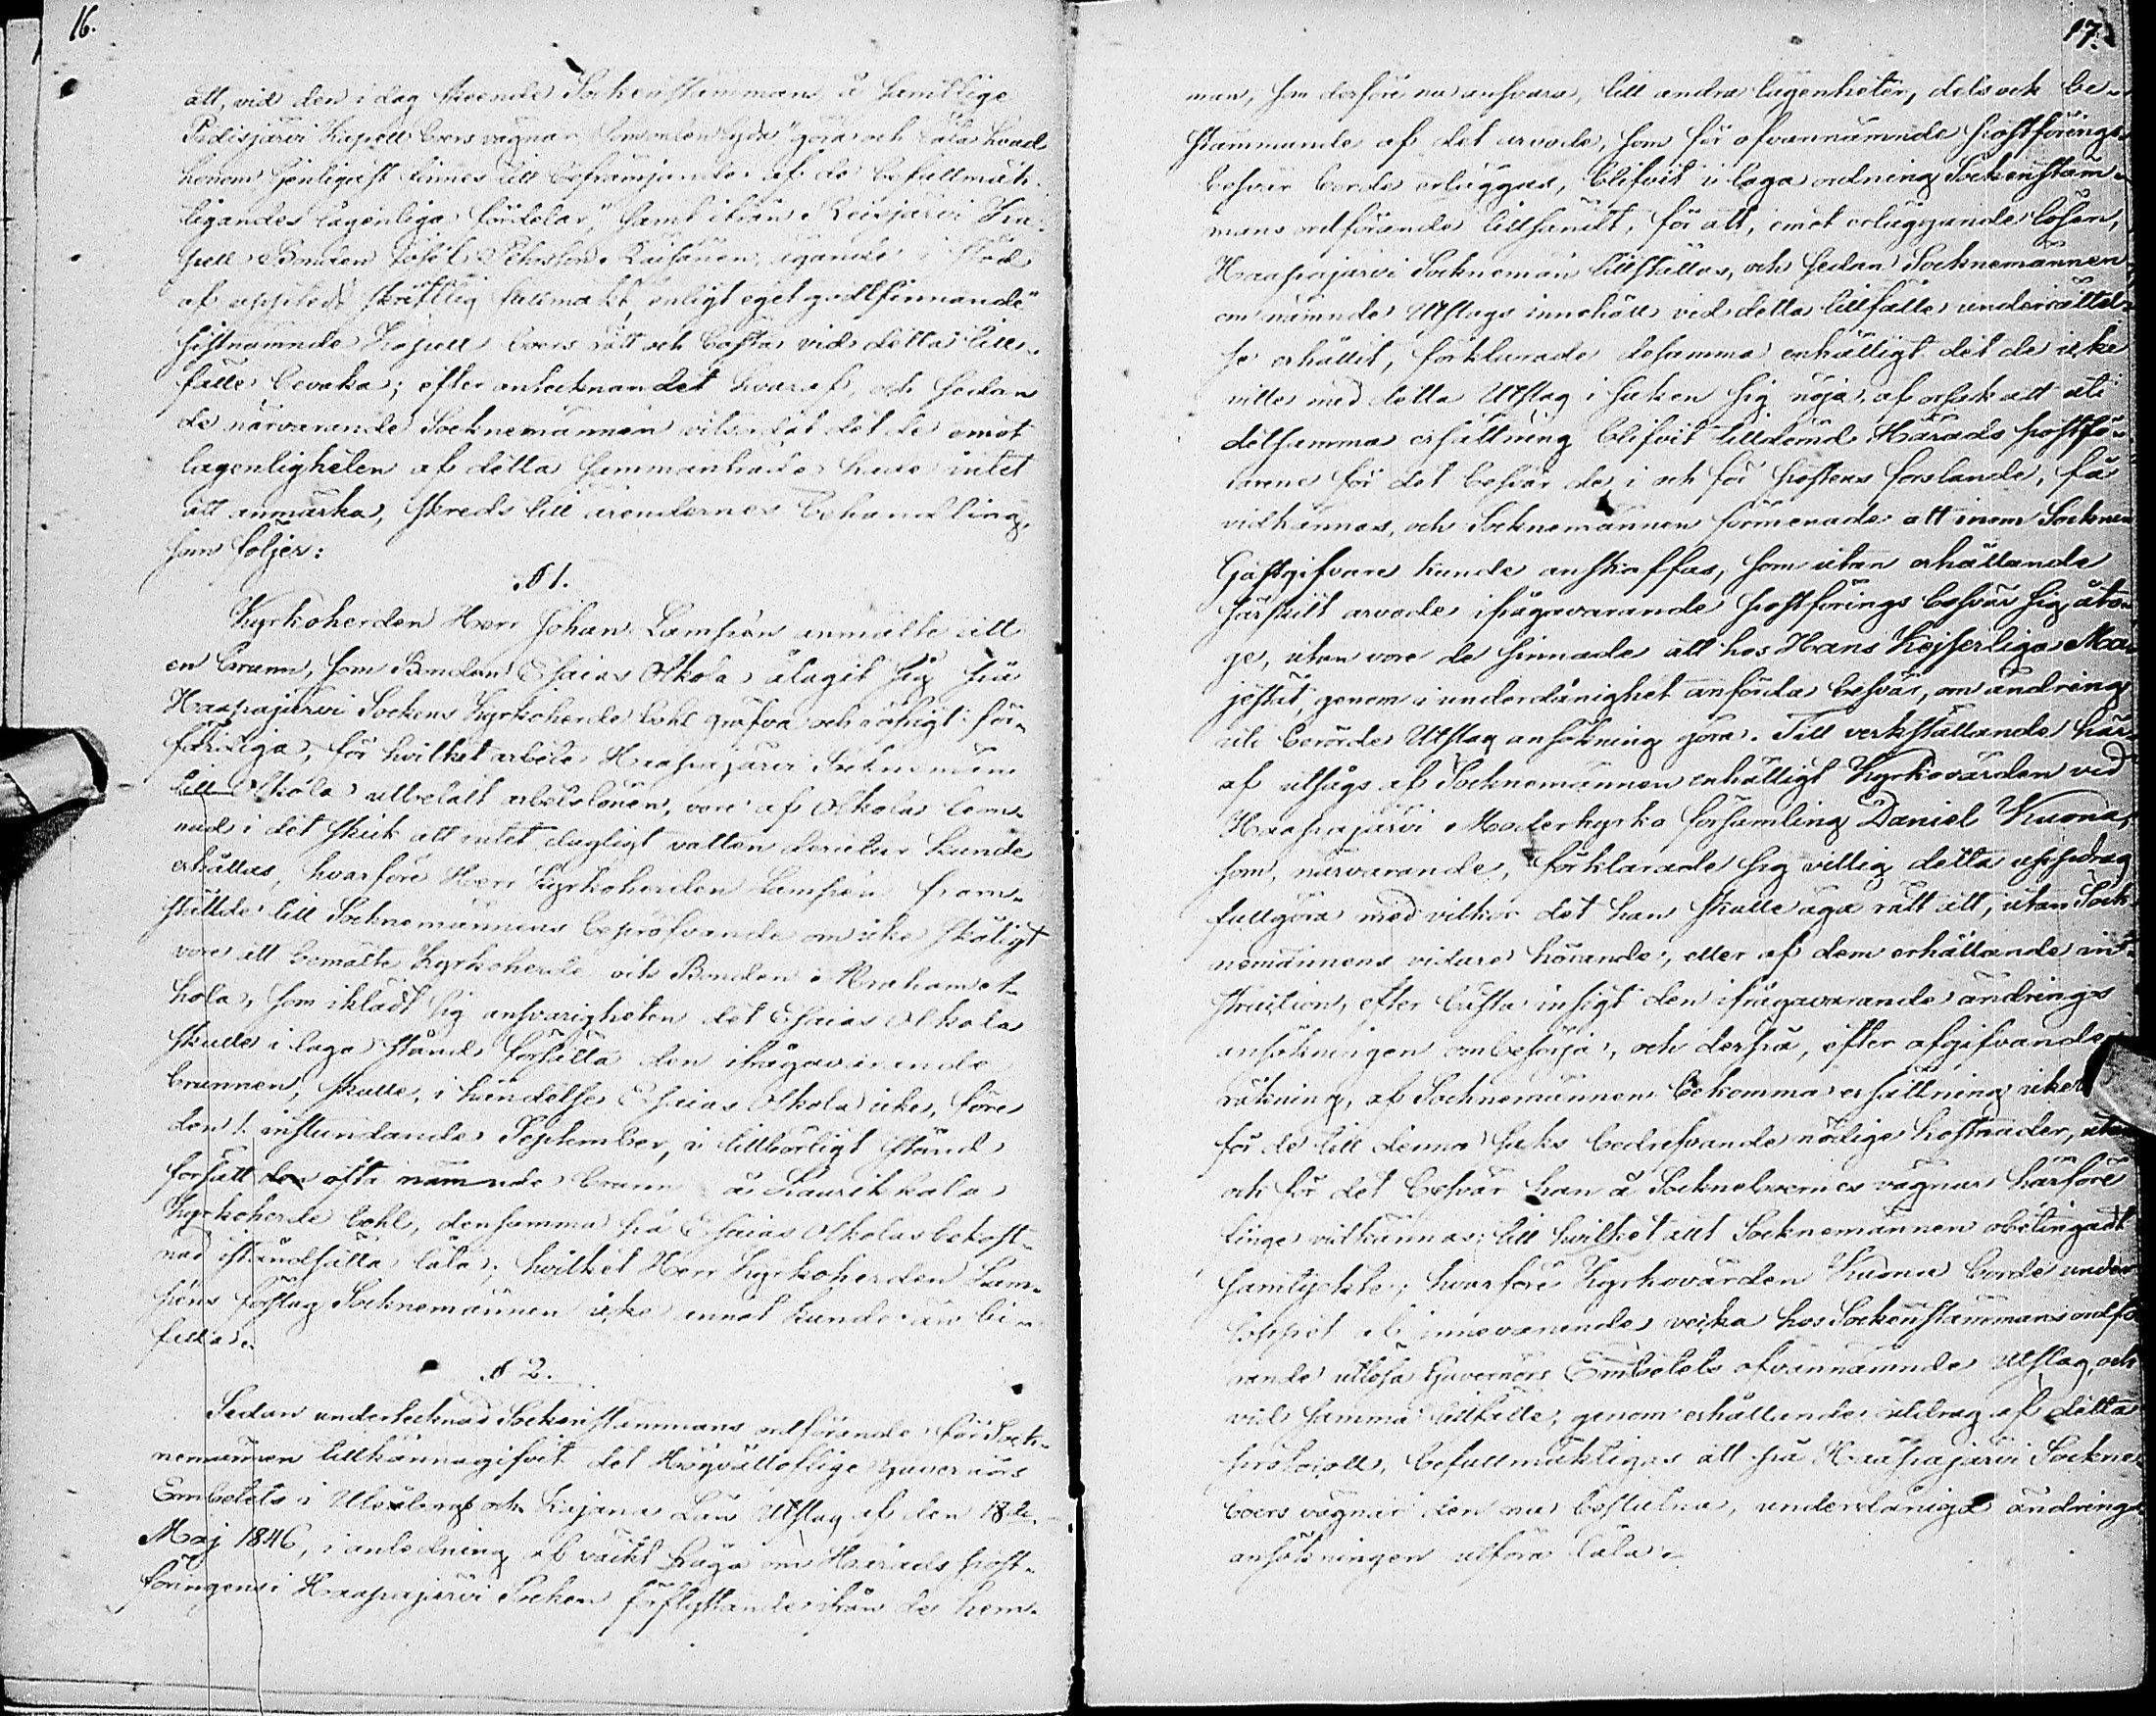 16.
att, vid den i dag skeende Sockenstammans å samtlige
Pidisjärvi Kapell boers vägnar "göra och låta hvad
honom jenligast finnes till befrämjande af de befullmäk-
tigandes lagenliga fördelar," samt ifrån Reisjärvi Ka-
pell Bonden Josef Pehrsson ägande i stöd
af uppteds skriftlig fullmakt, "enligt eget godtfinnande"
sistnämnde Kapell boers rätt och bästa vid detta till-
fälle bevaka; efter antecknandet hvaraf, och sedan
de närvarande Socknemännen vitsordat det de emot
lagenligheten af detta sammanträde hade intet
att anmärka, skreds till ärendernes behandling,
som följer:
§ 1.
Kyrkoherden Herr Johan Lampén anmälte att
en brunn, som Bonden Esaias Olkola ålagit sig på
Haapajärvi Sockens Kyrkoherde bohl gräfva och öfrigt för-
färdiga, för hvilket arbete Haapajärvi Socknemän
till Olkola utbetalt arbetslönen, vore af Olkola lem-
nad i det skick att intet dugligt vatten derutur kunde
erhållas, hvarföre Herr Kyrkoherden Lampén fram-
ställde till Socknemännens bepröfvande om icke skäligt
vore att bemälte Kyrkoherde och Bonden Abraham Ol-
kola, som iklädt sig ansvarigheten det Esaias Olkola
skulle i laga stånd försätta den ifrågavarande
brunnen, skulle, i händelse Esaias Olkola icke, före
den 1. instundande September, i tillbörligt stånd
försatt den ofta nämnde brunn å Laurikkala
Kyrkoherde bohl, densamma på Esaias Olkolas bekost-
nad iståndsätta låta; hvilket Herr Kyrkoherden Lam-
péns förslag Socknemännen icke annat kunde än bi-
falla.
§ 2.
Sedan undertecknad Sockenstammans ordförande för Sock-
nemännen tillkännagifvit det Högvällofliga Guvernörs
Embetets i Uleåborgs och Kajana Län Utslag af den 18de
Maj 1846, i anledning af väckt fråga om Härads post-
föringens i Haapajärvi Socken förflyttande ifrån de hem-
17.
man, som derföre nu ansvara, till andra lägenheter, dels och be-
stämmande af det arvode, som för ofvannämnde postförings
besvär borde erläggas, blifvit i laga ordning Sockenstäm-
mans ordförande tillsändt, för att, emot erläggande lösen,
Haapajärvi Sockneman tillställas, och sedan Socknemännen
om nämnde Utslags innehåll vid detta tillfälle underrättel-
se erhållit, förklarade desamma enhälligt det de icke
ville med detta Utslag i saken sig nöja, af orsak att uti
detsamma ersättning blifvit tilldömd Härads postfö-
rarene för det besvär de, i och för postens forslande, få
vidkännas, och Socknemännen förmenade att inom Socknen
Gästgifvare kunde anskaffas, som utan erhållande
särskilt arvode ifrågavarande postförings besvär sig åto-
ge, utan vore de sinnade att hos Hans Kejserliga Ma-
jestät, genom i underdånighet anförda besvär, om ändring
uti berörde Utslag ansökning göra. Till verkställande här-
af utsågs af Socknemännen enhälligt Kyrkovärden vid
Haapajärvi Moderkyrko församling Daniel Kuona,
som, närvarande, förklarade sig villig detta uppdrag
fullgöra med vilkor det han skulle äga rätt att, utan Sock-
nemännens vidare hörande, eller af dem erhållande in-
struction, efter bästa insigt den ifrågavarande ändrings
ansökningen ombesörja, och derpå, efter afgifvande
räkning, af Socknemännen bekomma ersättning icke
för de till denna saks bedrifvande nödige kostnader, utan
och för det besvär han å Sockneboernes vägnar härföre
finge vidkännas; till hvilket allt Socknemännen obetingadt
samtyckte; hvarföre Kyrkovärden Kuona borde under
loppet af innevarande vecka hos Sockenstammans ordfö-
rande utlösa Guvernörs Embetets ofvannämnde Utslag, och
vid samma tillfälle, genom erhållande utdrag af detta
protocoll, befullmäktigas att på Haapajärvi Sockne
boers vägnar den nu beslutna, underdåniga ändrings
ansökningen utföra låta.